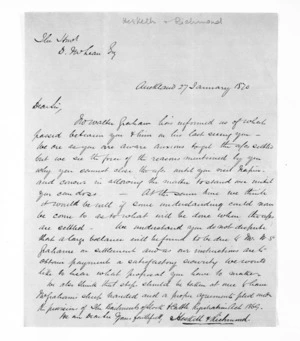 Hesketh & Richmond
The Hon
D. McLean Esq
Auckland 27 January 1870
Dear Sir,
Mr Walter Graham has informed us of what
passed between you & him on his last seeing you –
We are as you are aware anxious to get the a/c settled
but we see the force of the reasons mentioned by you
why you cannot close the a/c until you reach Napier
and concur in allowing the matter to stand over until
you can do so – At the same time we think
it would be well if some understanding could now
be come to as to what will be done when the a/c
are settled – We understand you do not dispute
that a large balance will be found to be due to Mr W. S.
Graham in settlement and as our instructions are to
obtain payment or satisfactory security we would
like to hear what proposal you have to make –
We also think that steps should be taken at once to have
Mr Graham's sheep branded and a proper agreement filed under
the provisions of the
We are Dear Sir Yours faithfully Hesketh & Richmond